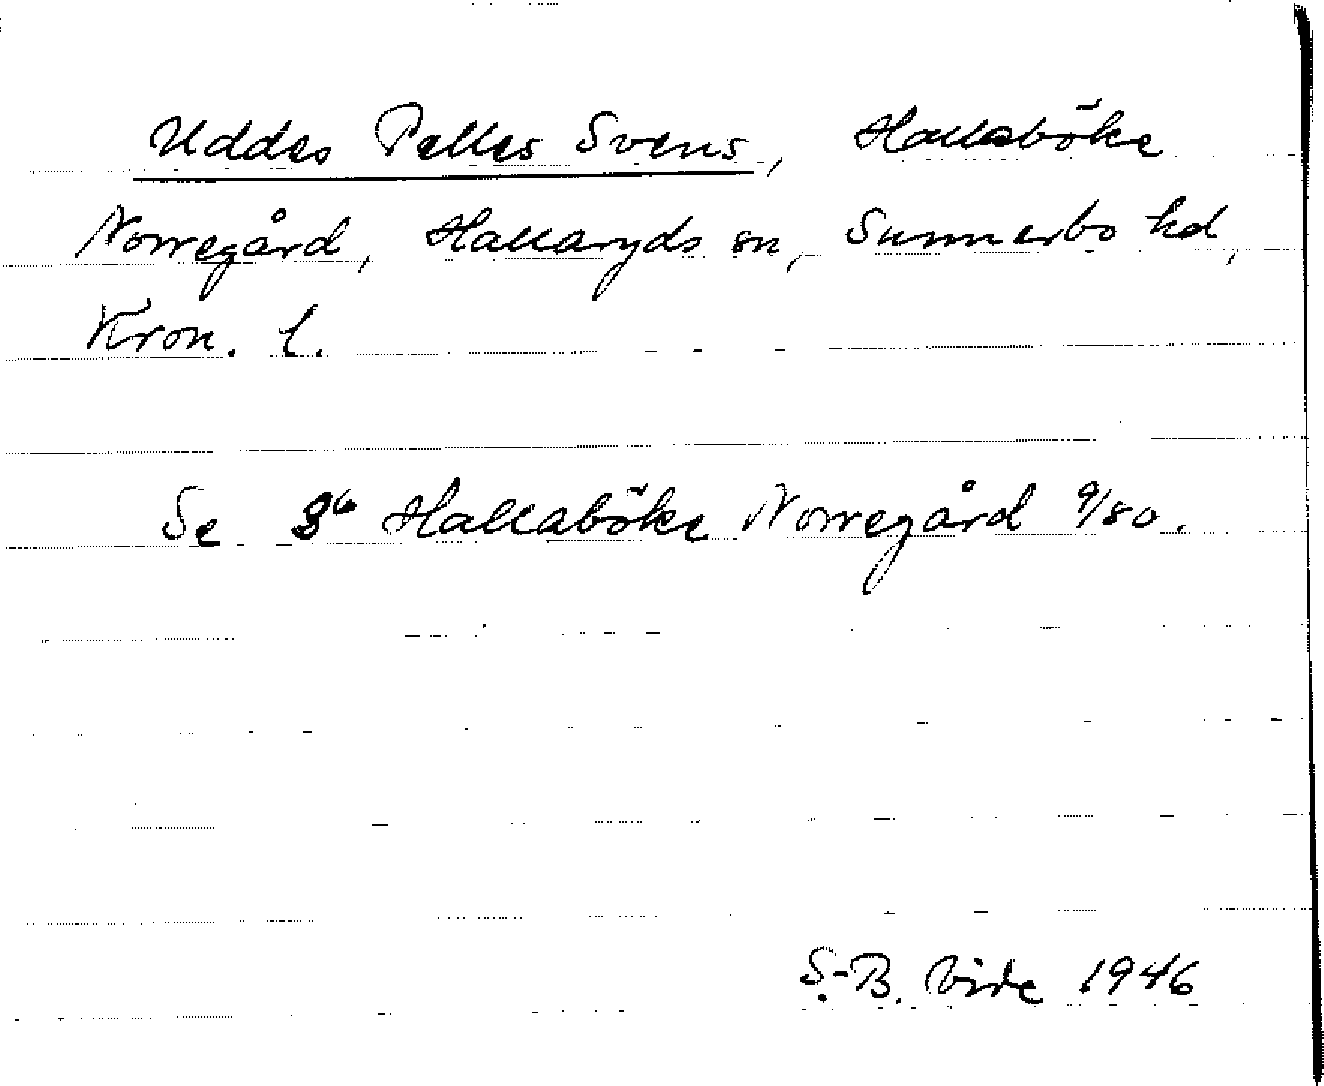 Uddes Pelles Svens, Hallaböke
Norregård, Hallaryds sn, Sunnerbo hd,
Kron. l.
Se Hallaböke Norregård 9/80.
S.-B. Vide 1946